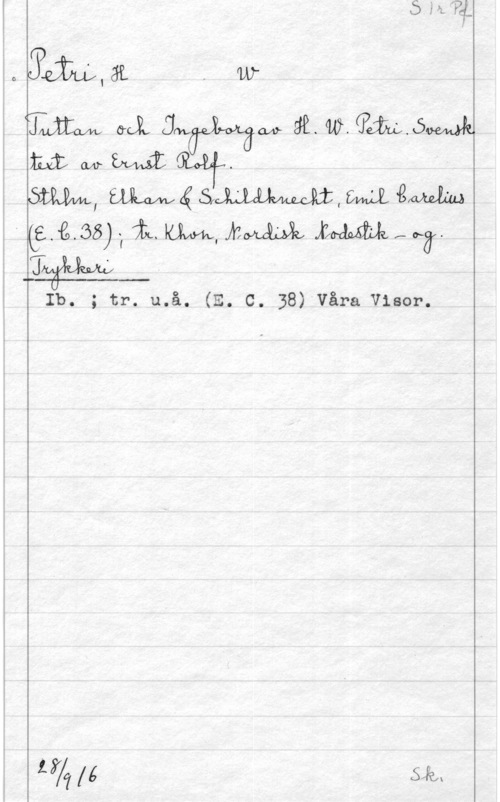 S 1 r Pf
Petri, H W
Tuttan och Ingeborg av H. W. Petri. Svensk
text av Ernst Rolf.
Sthlm, Elkan & Schildknecht, Emil Carelius
(E. C. 38); tr. Khvn, Nordisk Nodestik - og
Trykkeri
Ib. ; tr. u.å. (E. C. 38) Våra Visor.
28/9 16 Sk.